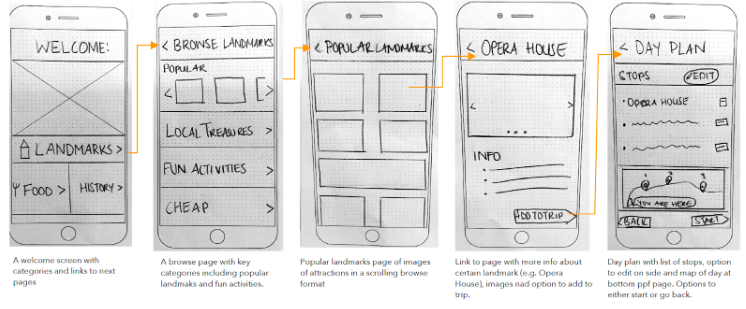 WELCOME:
LANDMARKS >
FOOD >
HISTORY >
A welcome screen with
categories and links to next
pages
< BROWSE LANDMARKS
POPULAR
< >
LOCAL TREASURES >
FUN ACTIVITIES >
CHEAP >
A browse page with key
categories including popular
landmaks and fun activities.
< POPULAR LANDMARKS
Popular landmarks page of images
of attractions in a scrolling browse
format
< OPERA HOUSE
< >
INFO
ADD TO TRIP
Link to page with more info about
certain landmark (e.g. Opera
House), images nad option to add to
trip.
< DAY PLAN
STOPS EDIT
• OPERA HOUSE
YOU ARE HERE
BACK START >
Day plan with list of stops, option
to edit on side and map of day at
bottom ppf page. Options to
either start or go back.